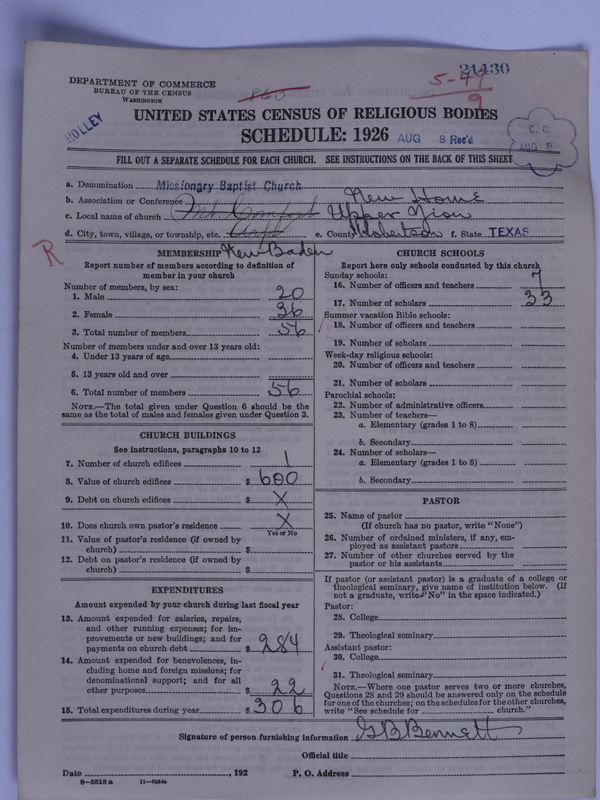 21430
DEPARTMENT OF COMMERCE
BUREAU OF THE CENSUS
WASHINGTON
860
5-49
9
HOLLEY
UNITED STATES CENSUS OF RELIGIOUS BODIES
SCHEDULE: 1926
AUG 8 Rec'd
C. C.
AUG 8
FILL OUT A SEPARATE SCHEDULE FOR EACH CHURCH. SEE INSTRUCTIONS ON THE BACK OF THIS SHEET
a. Denomination Missionary Baptist Church
b. Association or Conference New Home
c. Local name of church Mt. Comfort Upper Zion
d. City, town, village, or township, etc. e. County Robertson f. State TEXAS
R
New Baden
MEMBERSHIP
Report number of members according to definition of
member in your church
Number of members, by sex:
1. Male 20
2. Female 36
3. Total number of members 56
Number of members under and over 13 years old:
4. Under 13 years of age
5. 13 years old and over
6. Total number of members 56
NOTE.—The total given under Question 6 should be the
same as the total of males and females given under Question 3.
CHURCH BUILDINGS
See instructions, paragraphs 10 to 12
7. Number of church edifices 1
8. Value of church edifices $ 600
9. Debt on church edifices $ X
10. Does church own pastor's residence X
Yes or No
11. Value of pastor's residence (if owned by
church) $
12. Debt on pastor's residence (if owned by
church) $
EXPENDITURES
Amount expended by your church during last fiscal year
13. Amount expended for salaries, repairs,
and other running expenses; for im-
provements or new buildings; and for
payments on church debt $ 284
14. Amount expended for benevolences, in-
cluding home and foreign missions; for
denominational support; and for all
other purposes $ 22
15. Total expenditures during year $ 306
CHURCH SCHOOLS
Report here only schools conducted by this church
Sunday schools:
16. Number of officers and teachers 7
17. Number of scholars 33
Summer vacation Bible schools:
18. Number of officers and teachers
19. Number of scholars
Week-day religious schools:
20. Number of officers and teachers
21. Number of scholars
Parochial schools:
22. Number of administrative officers
23. Number of teachers—
a. Elementary (grades 1 to 8)
b. Secondary
24. Number of scholars—
a. Elementary (grades 1 to 8)
b. Secondary
PASTOR
25. Name of pastor
(If church has no pastor, write "None")
26. Number of ordained ministers, if any, em-
ployed as assistant pastors
27. Number of other churches served by the
pastor or his assistants
If pastor (or assistant pastor) is a graduate of a college or
theological seminary, give name of institution below. (If
not a graduate, write "No" in the space indicated.)
Pastor:
28. College
29. Theological seminary
Assistant pastor:
30. College
31. Theological seminary
NOTE.—Where one pastor serves two or more churches,
Questions 28 and 29 should be answered only on the schedule
for one of the churches; on the schedules for the other churches,
write "See schedule for church."
Signature of person furnishing information G B Bennett
Official title
Date , 192 P. O. Address
8-5518a 11-9054a